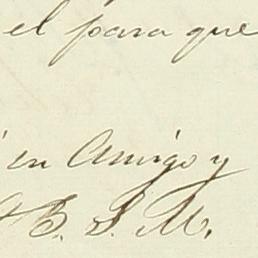 el para que
en Amigo y
B. S. M.